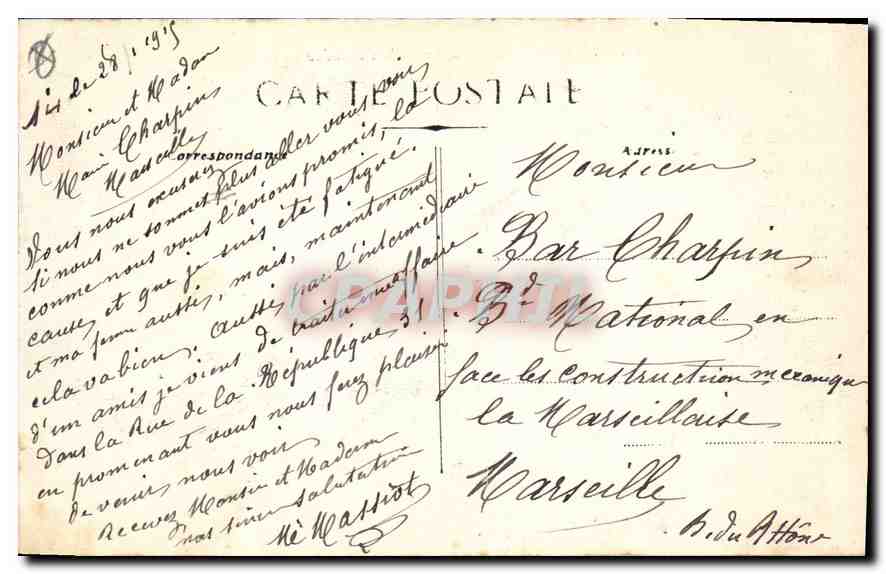 Aix le 28/1 1915
CARTE POSTALE
Monsieur et Madam
Charpin
Marseille
Correspondance
Vous nous excuserez
si nous ne sommes plus aller vous voir
comme nous vous l'avions promis, la
cause, et que je suis été fatigué.
et ma femme aussi, mais, maintenant
cela va bien. Aussi, par l'intermédiaire
d'un amis je viens de traiter une affaire
dans la Rue de la République 31
en promenant vous nous ferez plaisir
de venir nous voir
Recevez Monsieur et Madame
nos sincer salutation
Massiot
Adresse
Monsieur
Bar Charpin
Bd National en
face les construction mecanique
la Marseillaise
Marseille
B. du Rhône
CPAPHIL